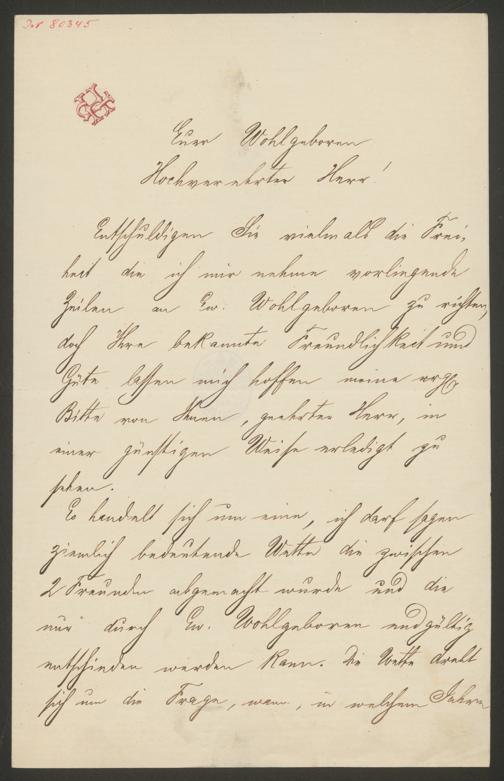 I.N. 80345
Euer Wohlgeboren
Hochverehrter Herr!
Entschuldigen Sie vielmals die Frei-
heit die ich mir nehme vorliegende
Zeilen an Ew. Wohlgeboren zu richten,
doch Ihre bekannte Freundlichkeit und
Güte lassen mich hoffen meine erg.
Bitte von Ihnen, geehrter Herr, in
einer günstigen Weise erledigt zu
sehen.
Es handelt sich um eine, ich darf sagen
ziemlich bedeutende Wette die zwischen
2 Freunden abgemacht wurde und die
nur durch Ew. Wohlgeboren endgültig
entschieden werden kann. Die Wette dreht
sich um die Frage, wann, in welchem Jahre